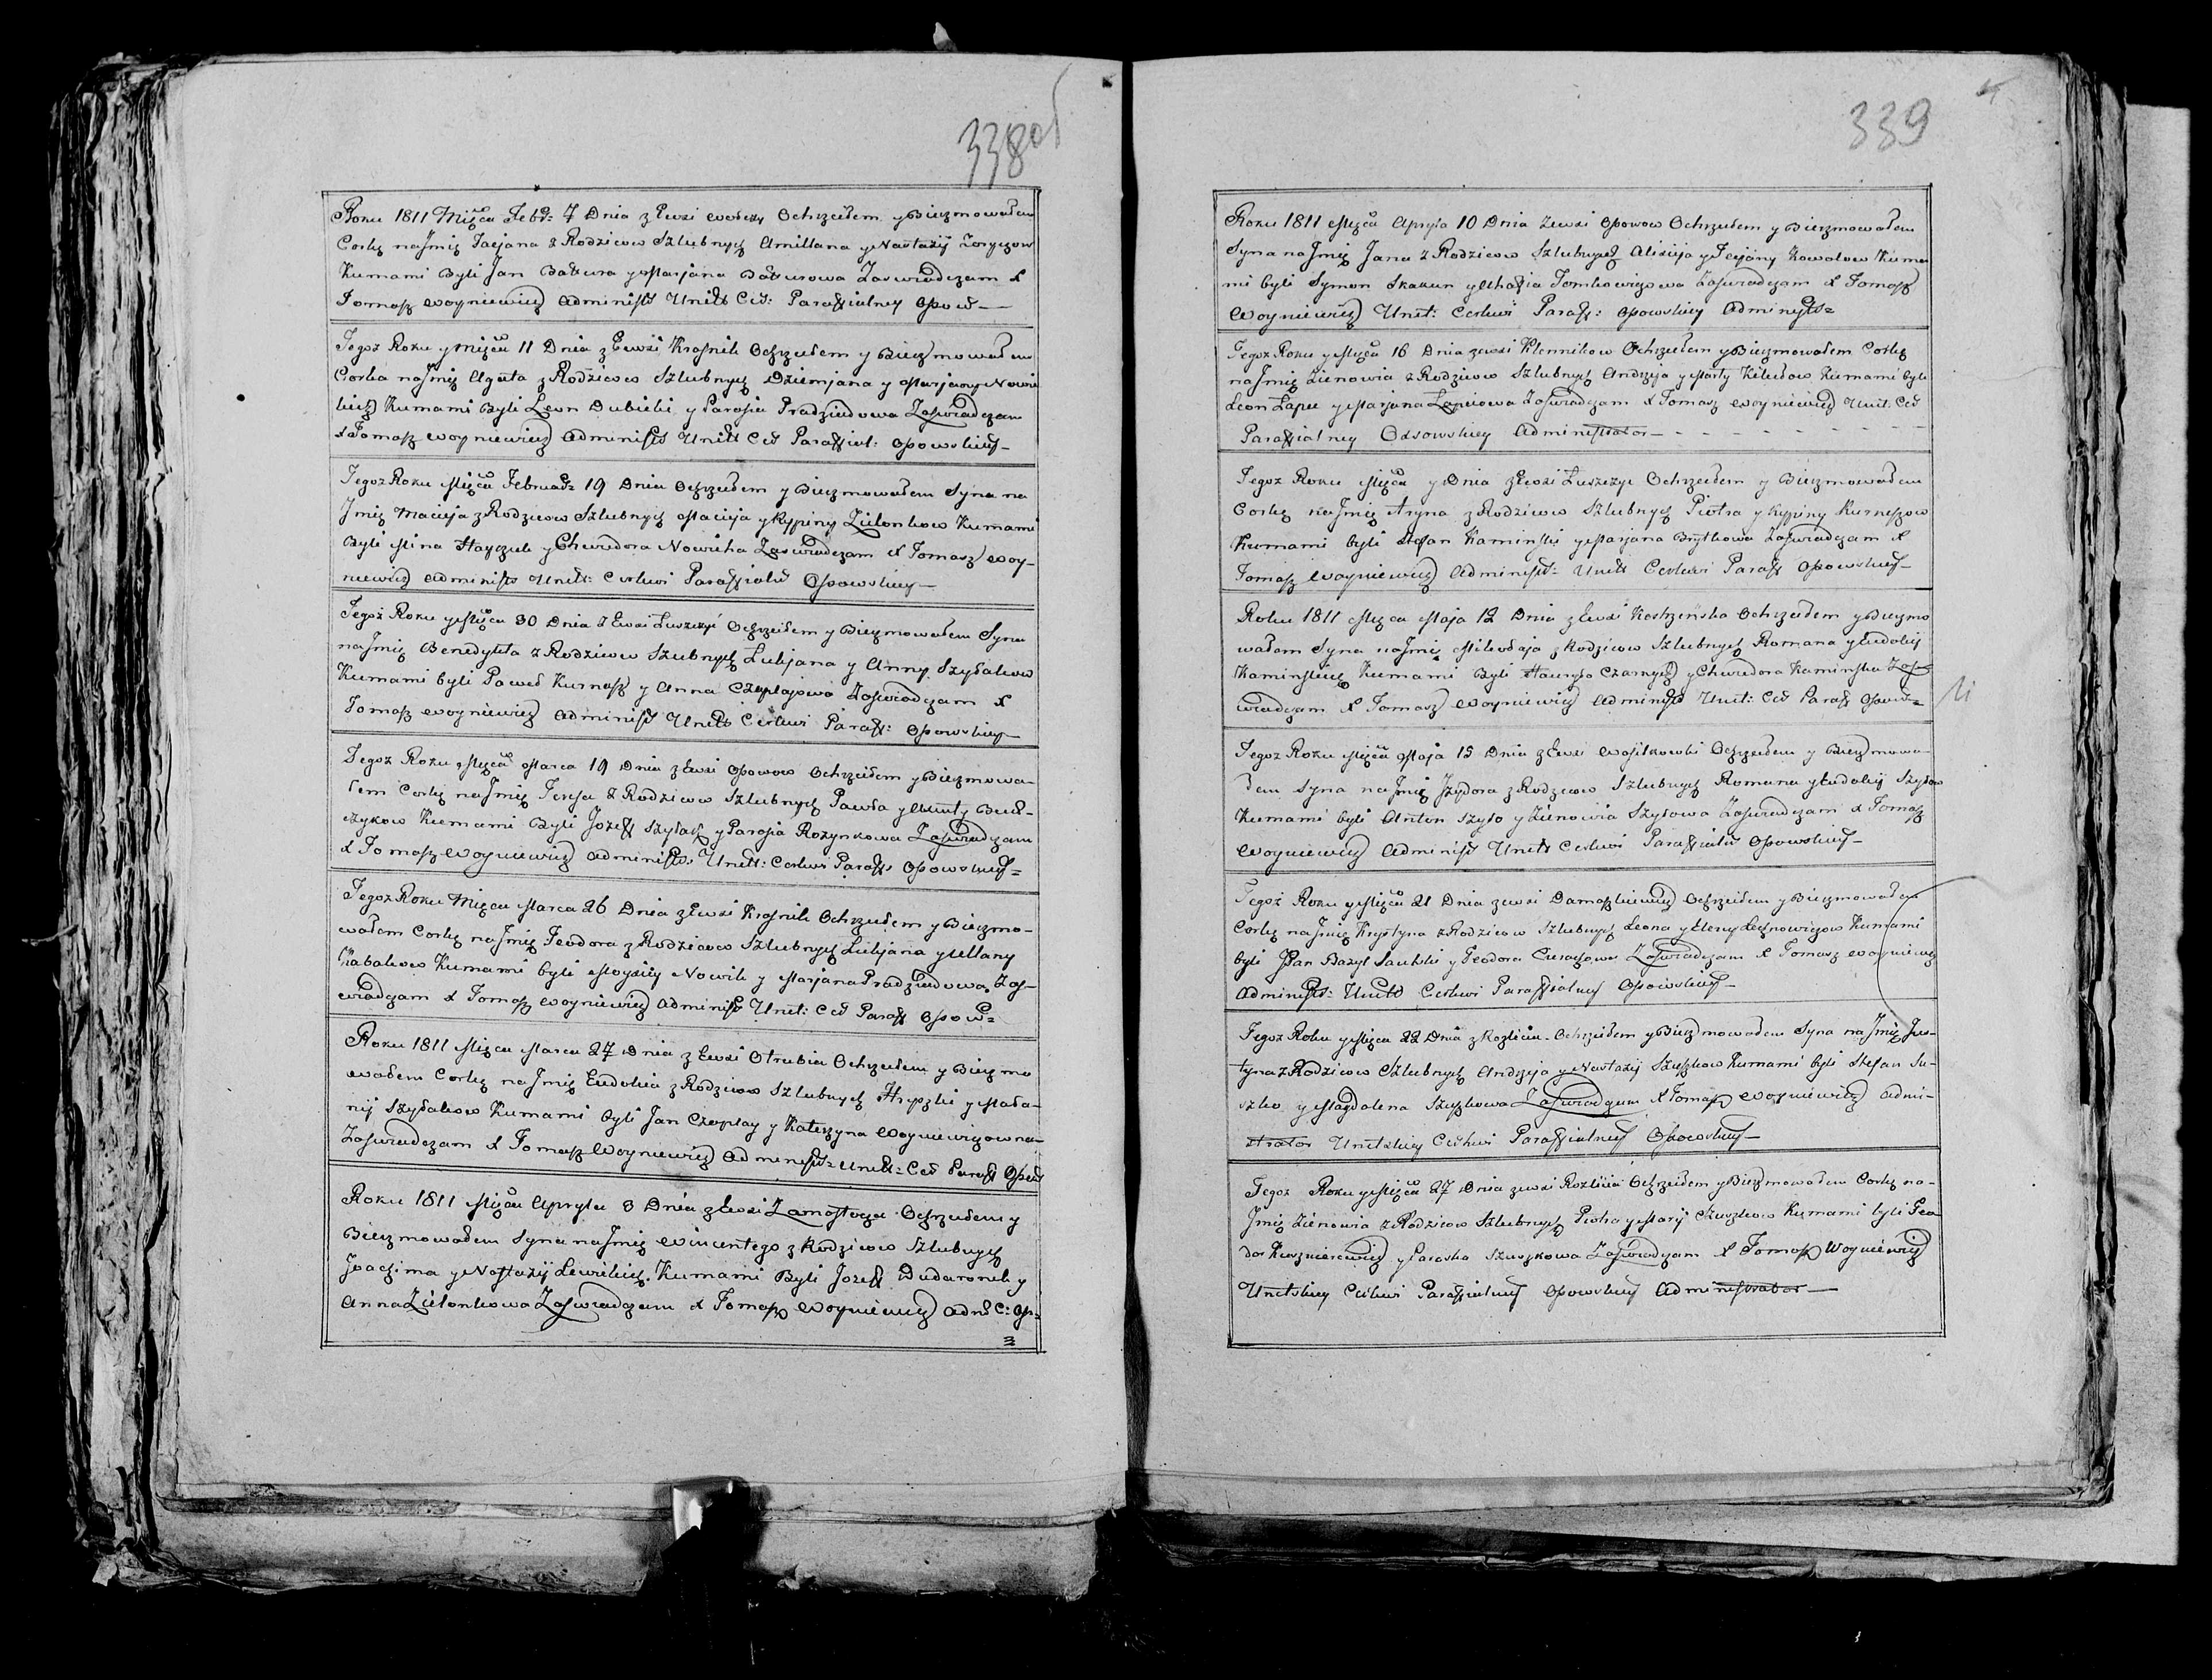 338об
Roku 1811 Mięca Febr: 7 Dnia z Ewsi Ochrzciłem y Bierzmowałem
Corkę na Jmię Tacjana z Rodzicow Szlubnych Amillana y Nastazij
Kumami Byli Jan Battura y Marjana Batturowa Zaswiadczam X
Tomasz Woyniewicz Administ Unitt Cer: Paraffialney Ossow
Tegoż Roku y Mięca 11 Dnia z Ewsi Krasnik Ochrzciłem y Bierzmowałem
Corka na Jmię Agata z Rodzicow Szlubnych Dziemjana y Marjany Nowi
kich Kumami Byli Leon Dubicki y Parasia Pradziedowa Zaswiadczam
X Tomasz Woyniewicz Administ Unitt Cer Paraffial: Ossowskiey
Tegoż Roku Mięca Februar: 19 Dnia Ochrzciłem y Bierzmowałem Syna na
Jmię Macieja z Rodzicow Szlubnych Macieja y Kryspiny Zielonkow Kumami
Byli Mina Hayczuk y Chwedora Nowicka Zaswiadczam X Tomasz Woy-
niewicz Administ Unitt: Cerkwi Paraffial Ossowskiey
Tegoż Roku y Mięca 30 Dnia z Ewsi Łuszczyć Ochrzciłem y Bierzmowałem Syna
na Jmię Benedykta z Rodzicow Szubnych Lukjana y Anny Szydakow
Kumami byli Paweł Kurnasz y Anna Czeplajowa Zaswiadczam X
Tomasz Woyniewicz Administ Unitt Cerkwi Paraff: Ossowskiey
Tegoż Roku Mięca Marca 19 Dnia z Ewsi Ossowo Ochrzciłem y Bierzmowa-
łem Corkę na Jmię Teresa z Rodzicow Szlubnych Pawła y
czykow Kumami Byli Jozeff Szyłak y Parasja Rozynkowa Zaswiadczam
X Tomasz Woyniewicz Administ Unitt: Cerkwi Paraff Ossowskiey
Tegoż Roku Mięca Marca 26 Dnia z Ewsi Krasnik Ochrzciłem y Bierzmo-
wałem Corkę na Jmię Teodora z Rodzicow Szlubnych Lukjana y Ullany
Kabakow Kumami byli Moysiey Nowik y Marjana Pradziedowa Zas-
wiadczam X Tomasz Woyniewicz Administ Unit: Cer Paraff Ossow
Roku 1811 Mięca Marca 27 Dnia z Ewsi Otrubia Ochrzciłem y Bierzmo
wałem Corkę na Jmię Eudokia z Rodzicow Szlubnych Hryszki y Mała-
nij Szydakow Kumami byli Jan Czeplay y Katerzyna Woyniewiczowna
Zaswiadczam X Tomasz Woyniewicz Administ Unitt: Cer Paraff Ossow
Roku 1811 Mięca Apryla 3 Dnia z Ewsi Zamostocza Ochrzciłem y
Bierzmowałem Syna na Jmię Wincentego z Rodzicow Szlubnych
Joachima y Nastazij Lewickich Kumami Byli Jozeff Dudaronek y
Anna Zielonkowa Zaswiadczam X Tomasz Woyniewicz Adm C: Os:
3
339
Roku 1811 Mięca Apryla 10 Dnia z ewsi Ossowo Ochrzciłem y Bierzmowałem
Syna na Jmię Jana z Rodzicow Szlubnych Alisieja y Tacjany Kowalow Kuma
mi byli Symon Skakun y Ahafia Tomkowiczowa Zaswiadczam X Tomasz
Woyniewicz Unit: Cerkwi Paraff: Ossowskiey Administ
Tegoż Roku y Mięca 16 Dnia z ewsi Klennikow Ochrzciłem y Bierzmowałem Corkę
na Jmię Zienowia z Rodzicow Szlubnych Andrzeja y Marty Kumami byli
Leon Łapec y Marjana Łapciowa Zaswiadczam X Tomasz Woyniewicz Unit: Cer
Paraffialney Ossowskiey Administrator
Tegoż Roku Mięca y Dnia z Ewsi Łuszczyc Ochrzciłem y Bierzmowałem
Corkę na Jmię Aryna z Rodzicow Szlubnych Piotra y Kryspiny Kurnaszow
Kumami byli Stefan Kaminski y Marjana Brytkowa Zaswiadczam X
Tomasz Woyniewicz Administ: Unitt Cerkwi Paraff Ossowskiey
Roku 1811 Mięca Maja 12 Dnia z Ewsi Ochrzciłem y Bierzmo
wałem Syna na Jmię Mikołaja z Rodzicow Szlubnych Romana y Eudokij
Kaminskich Kumami Byli Hauryło Czarnych y Chwedora Kaminska Zas
wiadczam X Tomasz Woyniewicz Administ Unit: Cer Paraff Ossow
Tegoż Roku Mięca Maja 15 Dnia z Ewsi Wasilkowki Ochrzciłem y Bierzmowa-
łem Syna na Jmię Jzydora z Rodzicow Szlubnych Romana y Eudokij Szyłow
Kumami byli Anton Szyło y Zienowia Szyłowa Zaswiadczam X Tomasz
Woyniewicz Administ Unitt Cerkwi Paraffial Ossowskiey
Tegoż Roku y Mięca 21 Dnia z ewsi Damaszkiewicz Ochrzciłem y Bierzmowałem
Corkę na Jmię Krystyna z Rodzicow Szlubnych Leona y Eleny Kumami
byli JPan Bazyl y Teodora Zaswiadczam X Tomasz Woyniewicz
Administ: Unitt Cerkwi Paraffialney Ossowskiey
Tegoż Roku y Mięca 22 Dnia z Kozlicia Ochrzciłem y Bierzmowałem Syna na Jmię Jus-
tyna z Rodzicow Szlubnych Andrzeja y Nastazij Szuszkow Kumami byli Stefan Su-
szko y Magdalena Szuszkowa Zaswiadczam X Tomasz Woyniewicz Admi-
strator Unitskiey Cerkwi Paraffialney Ossowskiey
Tegoż Roku y Mięca 27 Dnia z ewsi Kozlicia Ochrzciłem y Bierzmowałem Corkę na-
Jmię Zienowia z Rodzicow Szlubnych Piotra y Marij Szuszkow Kumami byli Teo
dor y Paraska Szuszkowa Zaswiadczam X Tomasz Woyniewicz
Unitskiey Cerkwi Paraffialney Ossowskiey Administrator